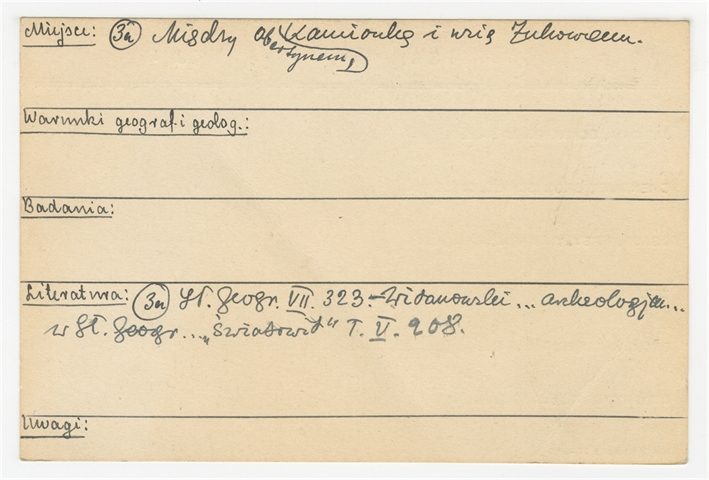 Miejsce: 3a Między Obertynem, Kamionką i wsią Żukowem.
Warunki geograf. i geolog.:
Badania:
Literatura: 3a Sł. Geogr. VII. 323. - Widanowski ... archeologja ...
w Sł. Geogr. ... „Światowit" T. V. 208.
Uwagi: